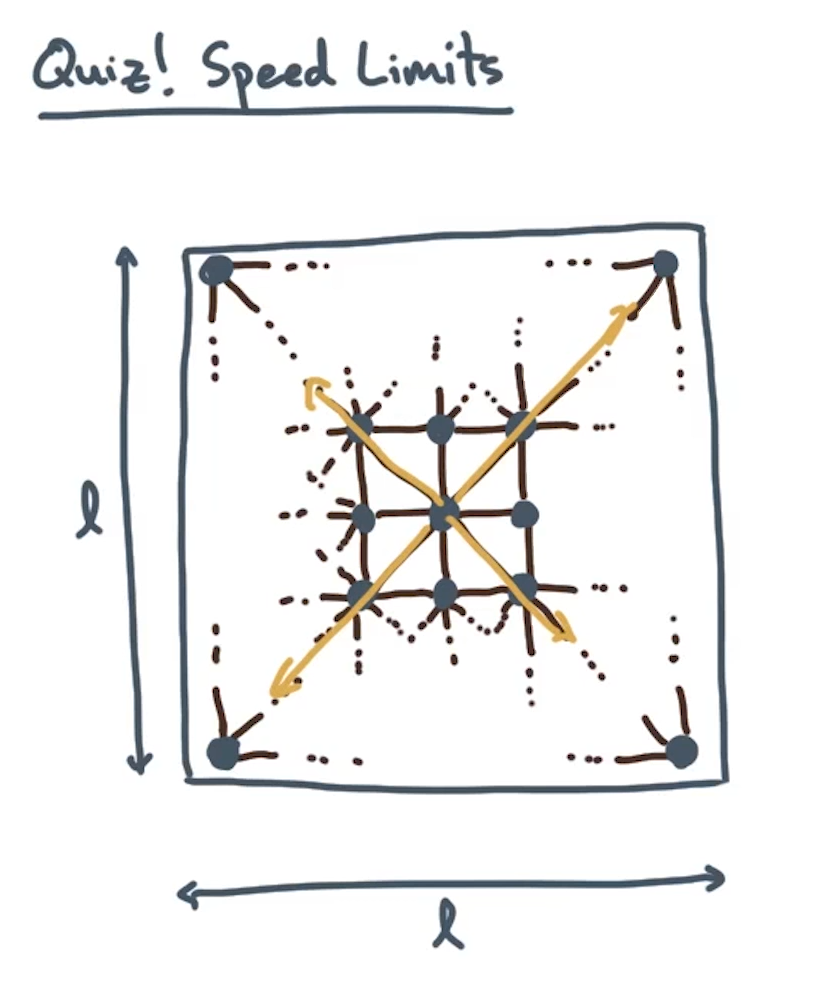 Quiz! Speed Limits
l
l